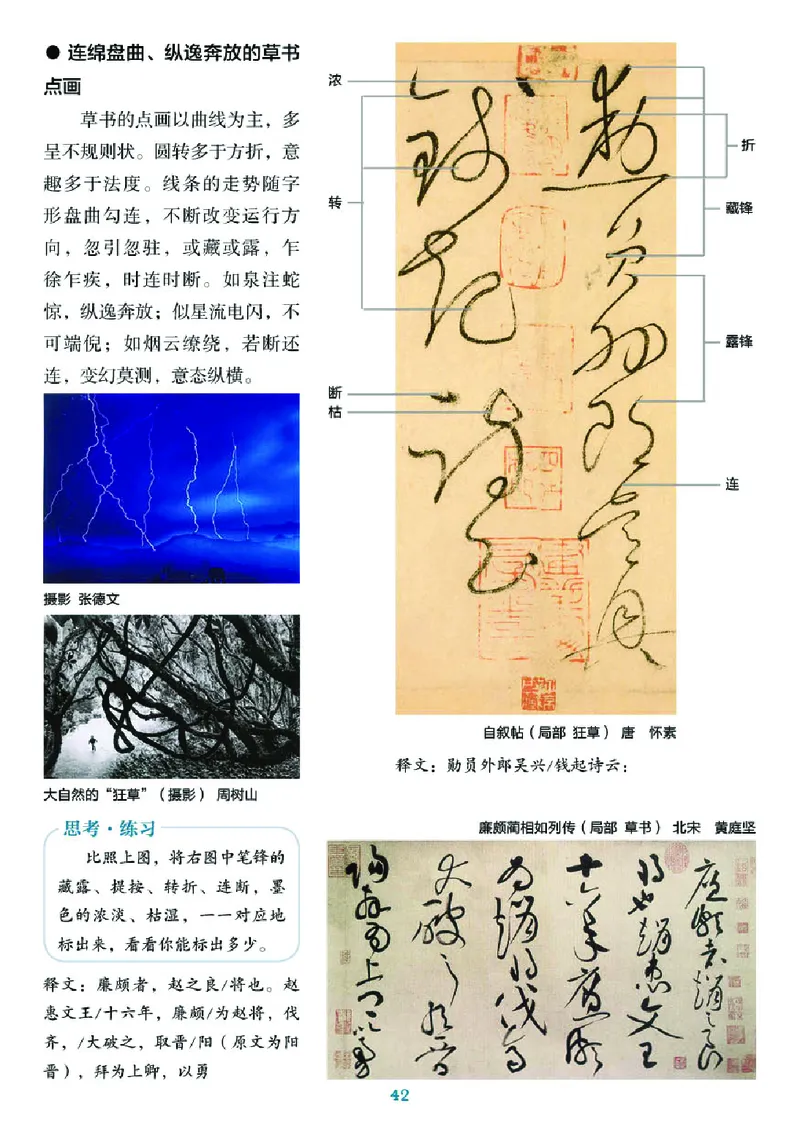 ● 连绵盘曲、纵逸奔放的草书
点画
草书的点画以曲线为主，多
呈不规则状。圆转多于方折，意
趣多于法度。线条的走势随字
形盘曲勾连，不断改变运行方
向，忽引忽驻，或藏或露，乍
徐乍疾，时连时断。如泉注蛇
惊，纵逸奔放；似星流电闪，不
可端倪；如烟云缭绕，若断还
连，变幻莫测，意态纵横。
摄影 张德文
大自然的“狂草”（摄影） 周树山
思考·练习
比照上图，将右图中笔锋的
藏露、提按、转折、连断，墨
色的浓淡、枯湿，一一对应地
标出来，看看你能标出多少。
释文：廉颇者，赵之良/将也。赵
惠文王/十六年，廉颇/为赵将，伐
齐，/大破之，取晋/阳（原文为阳
晋），拜为上卿，以勇
浓
转
断
枯
折
藏锋
露锋
连
勋员外郎吴兴
钱起诗云
自叙帖（局部 狂草） 唐 怀素
释文：勋员外郎吴兴/钱起诗云：
廉颇蔺相如列传（局部 草书） 北宋 黄庭坚
廉颇者赵之良
将也赵惠文王
十六年廉颇
为赵将伐齐
大破之取晋
阳拜为上卿以勇
42